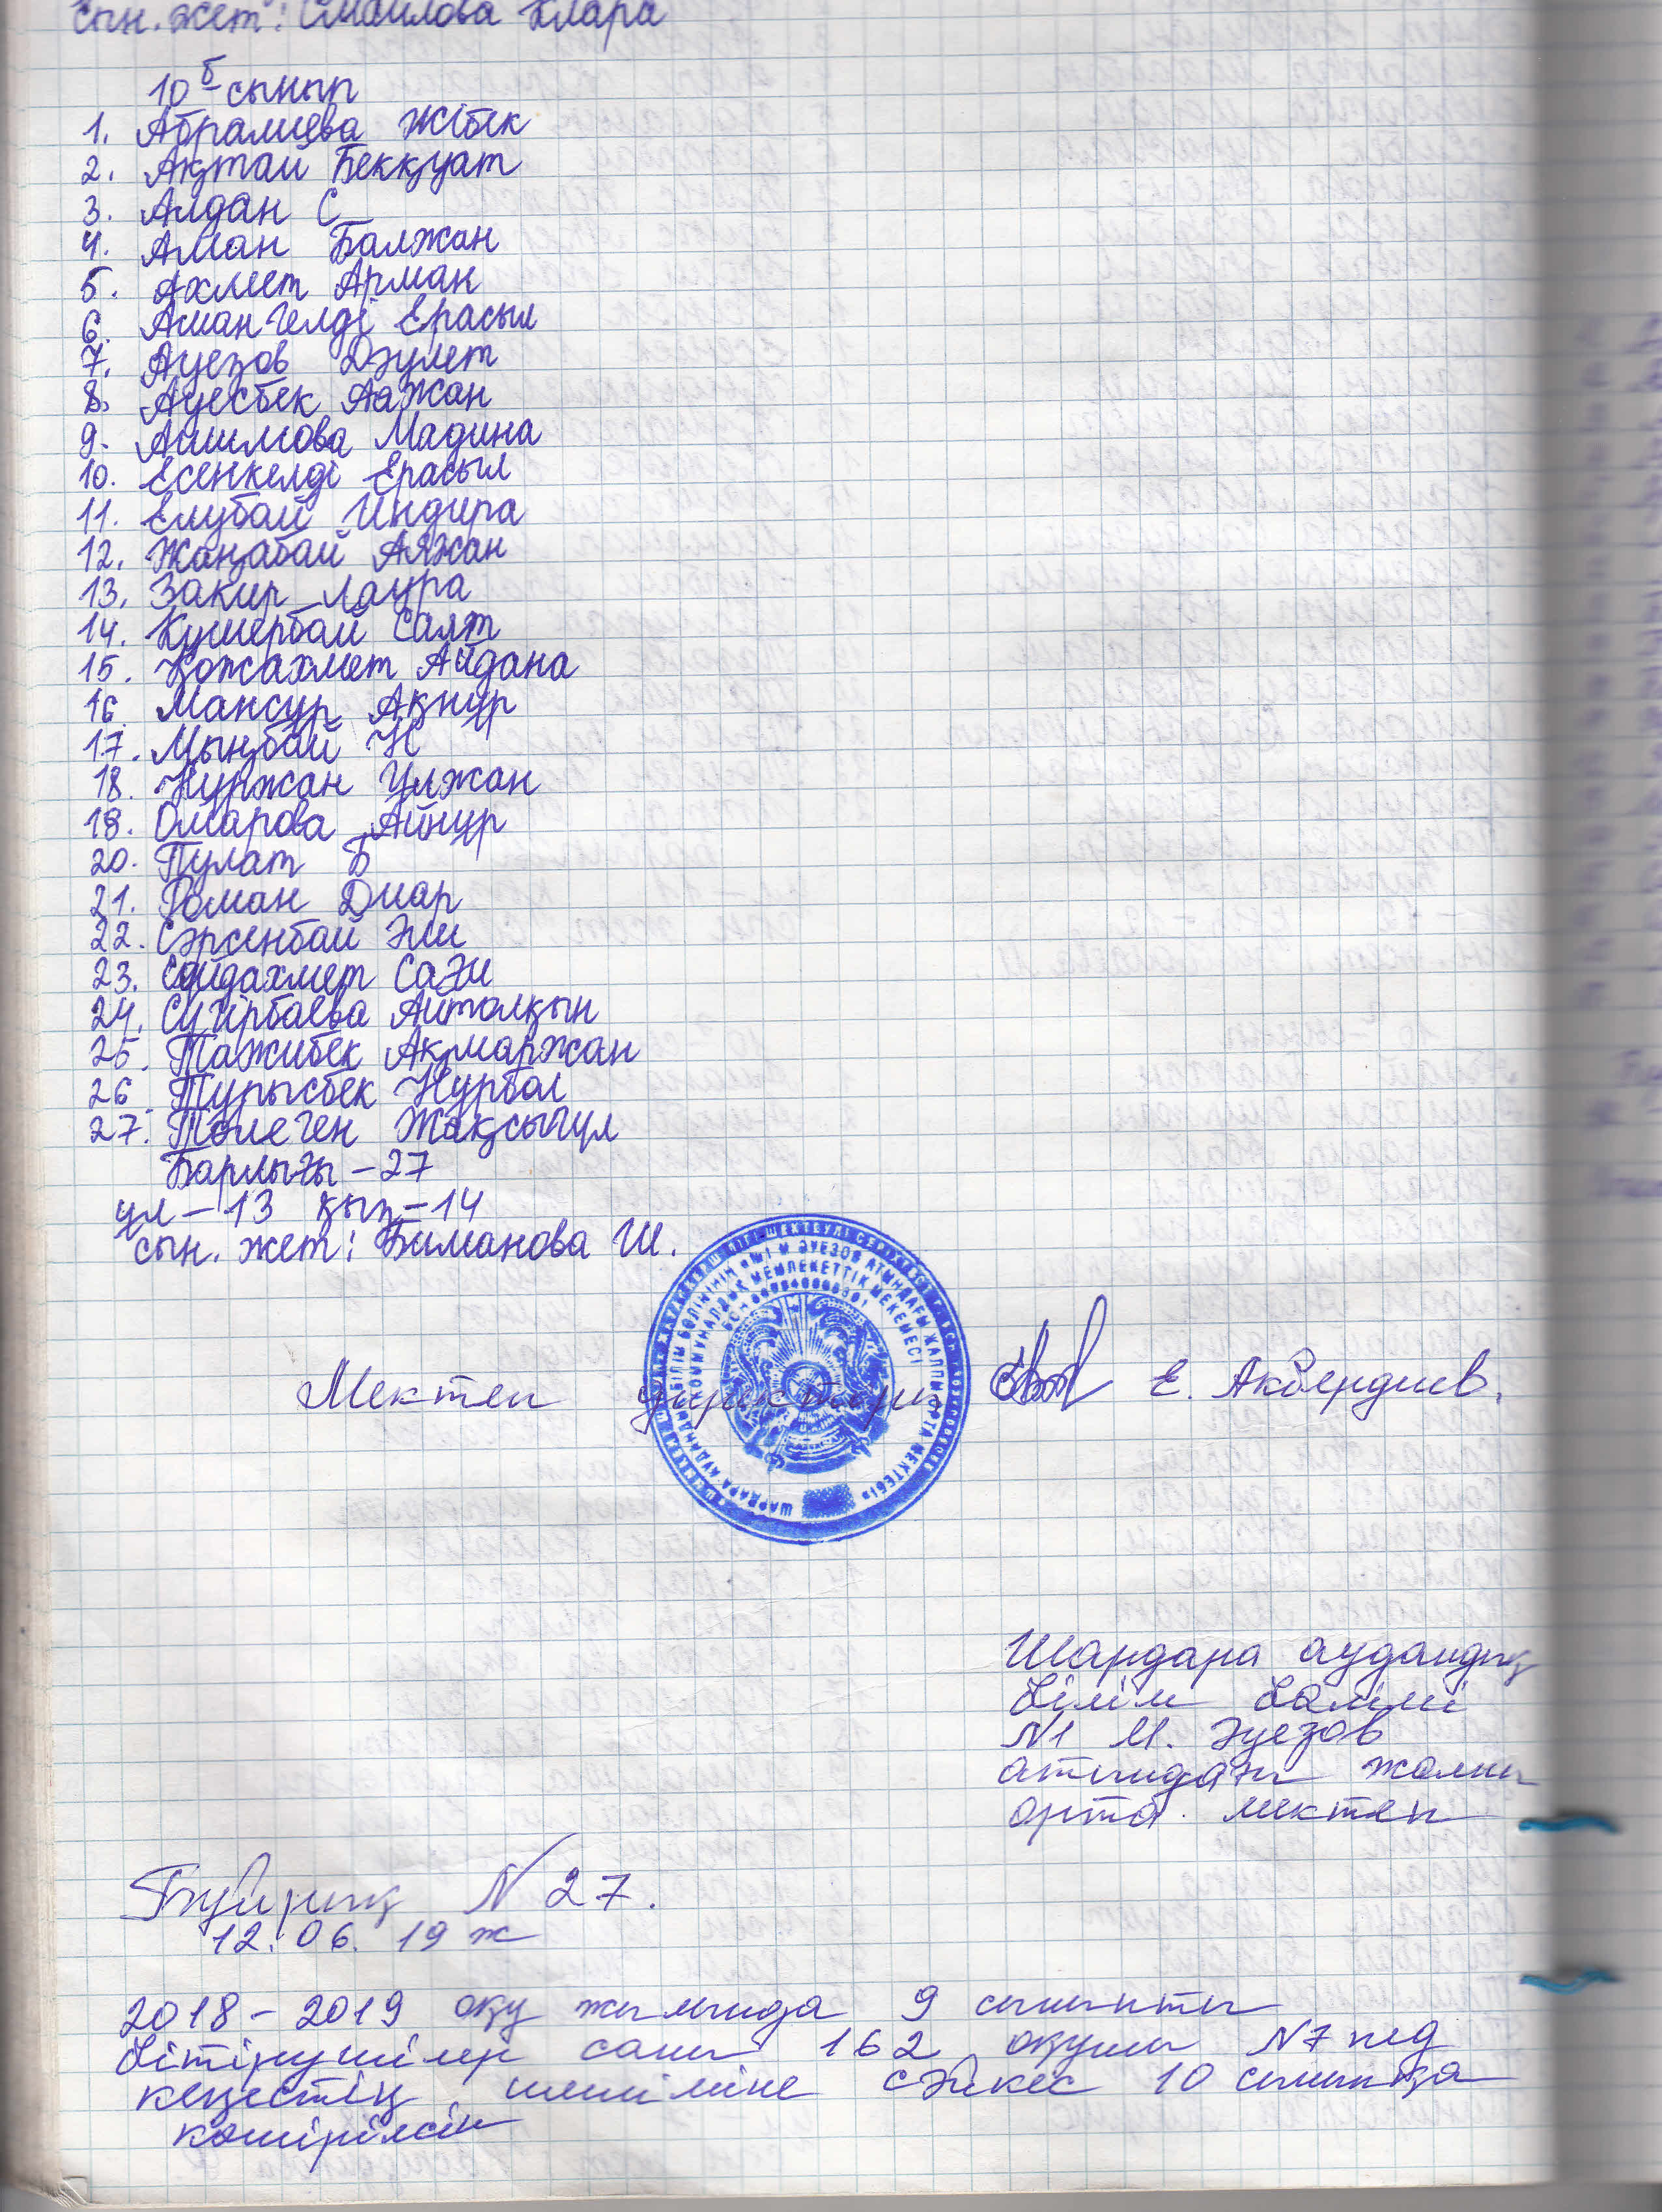 сын. жет: Смаилова Клара
10 б - сынып
1. Абрамиева Жібек
2. Ақтай Беққуат
3. Алдан С
4. Аман Балжан
5. Ахмет Арман
6. Амангелді Ерасыл
7. Ауезов Дәулет
8. Ауесбек Аяжан
9. Ашимова Мадина
10. Есенкелді Ерасыл
11. Елубай Индира
12. Жаңабай Аяжан
13. Закир Лаура
14. Кушербай Салт
15. Қожахмет Айдана
16. Мансур Ақнұр
17. Мыңбай Н
18. Нуржан Ұлжан
19. Омарова Айнұр
20. Пулат Б
21. Роман Диар
22. Сәрсенбай Әли
23. Сейдахмет Сағи
24. Сүгірбаева Айтолқын
25. Тажибек Ақмаржан
26 Тұрысбек Нұрбол
27. Төлеген Жақсыгүл
Барлығы - 27
ұл - 13 қыз - 14
сын. жет: Биманова Ш.
ШАРДАРА АУДАНДЫҚ БІЛІМ БӨЛІМІНІҢ «№1 М ӘУЕЗОВ АТЫНДАҒЫ ЖАЛПЫ ОРТА МЕКТЕБІ»
КОММУНАЛДЫҚ МЕМЛЕКЕТТІК МЕКЕМЕСІ
Мектеп директоры Е. Акбердиев.
Шардара аудандық
білім бөлімі
№1 М. Әуезов
атындағы жалпы
орта мектеп
Бұйрық №27.
12. 06. 19 ж
2018 - 2019 оқу жылында 9 сыныпты
бітірушілер саны 162 оқушы №7 пед
кеңестің шешіміне сәйкес 10 сыныпқа
көшірілсін